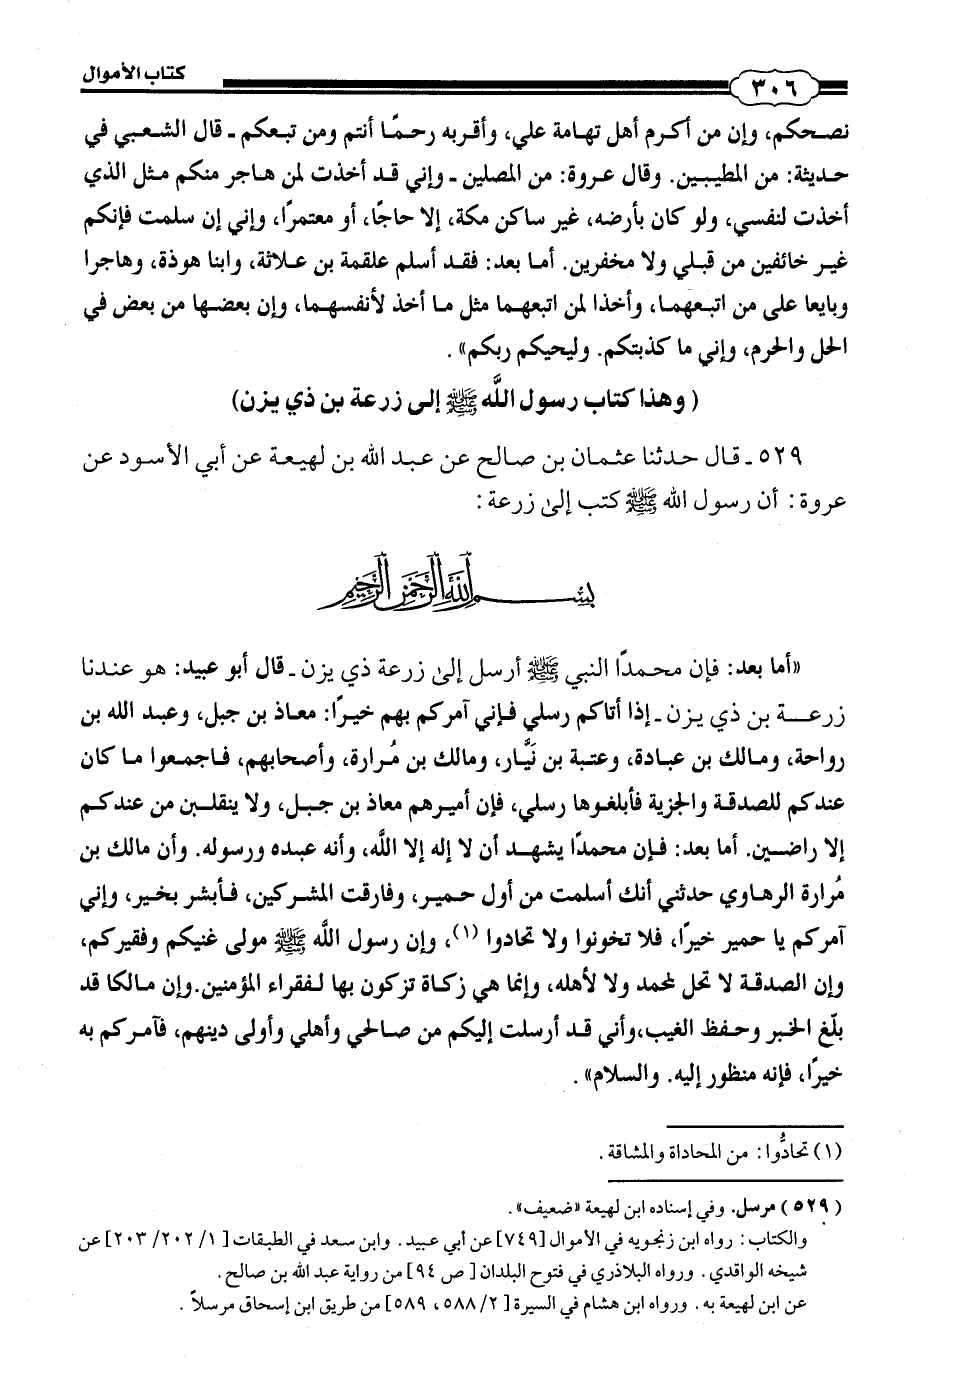 كتاب الأموال
٣٠٦
نصحكم، وإن من أكرم أهل تهامة علي، وأقربه رحمًا أنتم ومن تبعكم ـ قال الشعبي في
حديثة: من المطيبين. وقال عروة: من المصلين ـ وإني قد أخذت لمن هاجر منكم مثل الذي
أخذت لنفسي، ولو كان بأرضه، غير ساكن مكة، إلا حاجًا، أو معتمرًا، وإني إن سلمت فإنكم
غير خائفين من قبلي ولا مخفرين. أما بعد: فقد أسلم علقمة بن علاثة، وابنا هوذة، وهاجرا
وبايعا على من اتبعهما، وأخذا لمن اتبعهما مثل ما أخذ لأنفسهما، وإن بعضها من بعض في
الحل والحرم، وإني ما كذبتكم. وليحيكم ربكم» .
( وهذا كتاب رسول اللَّه ﷺ إلى زرعة بن ذي يزن)
٥٢٩ ـ قال حدثنا عثمان بن صالح عن عبد الله بن لهيعة عن أبي الأسود عن
عروة: أن رسول الله ﷺ كتب إلىٰ زرعة :
بسم الله الرحمن الرحيم
«أما بعد: فإن محمدًا النبي ﷺ أرسل إلىٰ زرعة ذي يزن ـ قال أبو عبيد: هو عندنا
زرعة بن ذي يزن ـ إذا أتاكم رسلي فإني آمركم بهم خيرًا: معاذ بن جبل، وعبد الله بن
رواحة، ومالك بن عبادة، وعتبة بن نَيَّار، ومالك بن مُرارة، وأصحابهم، فاجمعوا ما كان
عندكم للصدقة والجزية فأبلغوها رسلي، فإن أميرهم معاذ بن جبل، ولا ينقلبن من عندكم
إلا راضين. أما بعد: فإن محمدًا يشهد أن لا إله إلا اللَّه، وأنه عبده ورسوله. وأن مالك بن
مُرارة الرهاوي حدثني أنك أسلمت من أول حمير، وفارقت المشركين، فأبشر بخير، وإني
آمركم يا حمير خيرًا، فلا تخونوا ولا تحادوا (١)، وإن رسول اللَّه ﷺ مولى غنيكم وفقيركم،
وإن الصدقة لا تحل لمحمد ولا لأهله، وإنما هي زكاة تزكون بها لفقراء المؤمنين.وإن مالكا قد
بلّغ الخبر وحفظ الغيب،وأني قد أرسلت إليكم من صالحي وأهلي وأولى دينهم، فآمركم به
خيرًا، فإنه منظور إليه. والسلام» .
(١) تحادُّوا: من المحاداة والمشاقة .
( ٥٢٩ ) مرسل. وفي إسناده ابن لهيعة «ضعيف» .
والكتاب : رواه ابن زنجويه في الأموال [٧٤٩] عن أبي عبيد . وابن سعد في الطبقات [ ١/ ٢٠٢/ ٢٠٣] عن
شيخه الواقدي . ورواه البلاذري في فتوح البلدان [ ص ٩٤] من رواية عبد الله بن صالح .
عن ابن لهيعة به . ورواه ابن هشام في السيرة [ ٢/ ٥٨٨ ، ٥٨٩] من طريق ابن إسحاق مرسلاً .